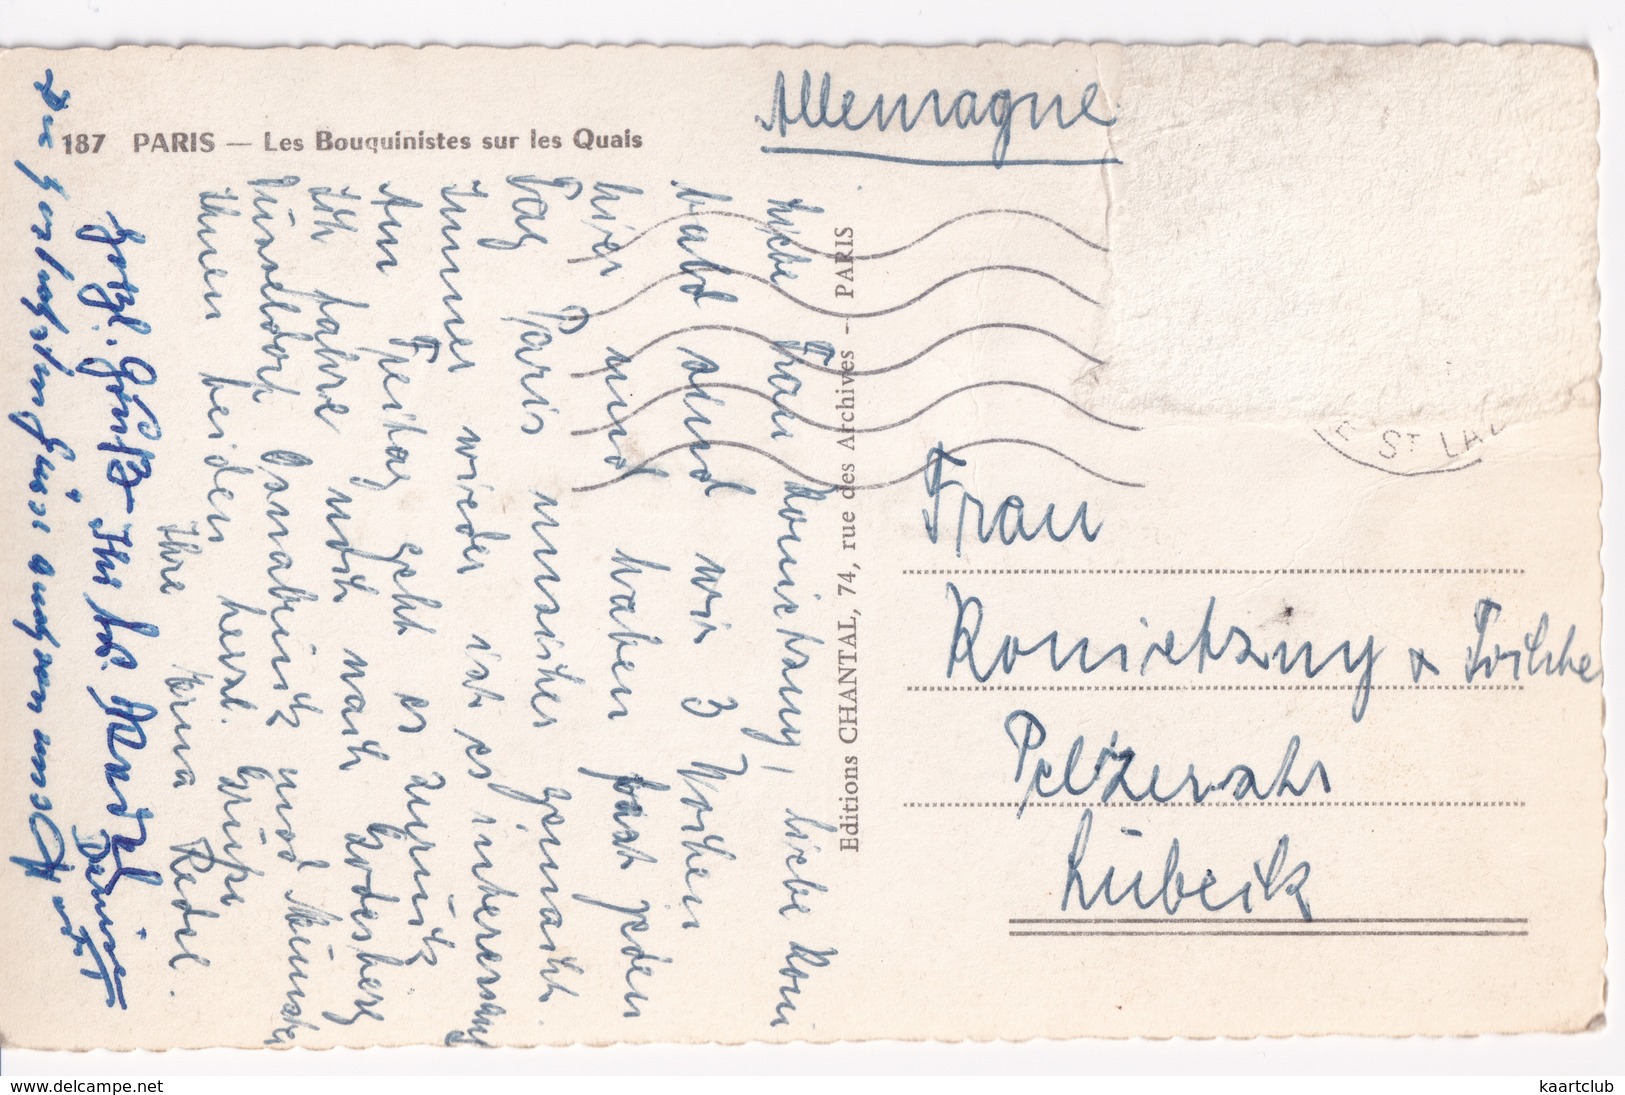 187 PARIS — Les Bouquinistes sur les Quais
Allemagne
Liebe Frau Konietzny, liebe Koni
bald sind wir 3 Wochen
hier und haben fast jeden
Tag Paris unsicher gemacht.
Immer wieder ist es interessant
Am Freitag geht es zurück
Ich fahre noch nach Godesberg
Düsseldorf Osnabrück und Münster
Ihnen beiden herzl. Grüße
Ihre Erna Redel.
herzl. Grüße Ihr
Denise
Die herzlichsten Grüsse auch von
Editions CHANTAL, 74, rue des Archives - PARIS
ST LAZ
Frau
Konietzny
Pelzerstr
Lübeck
www.delcampe.net
kaartclub